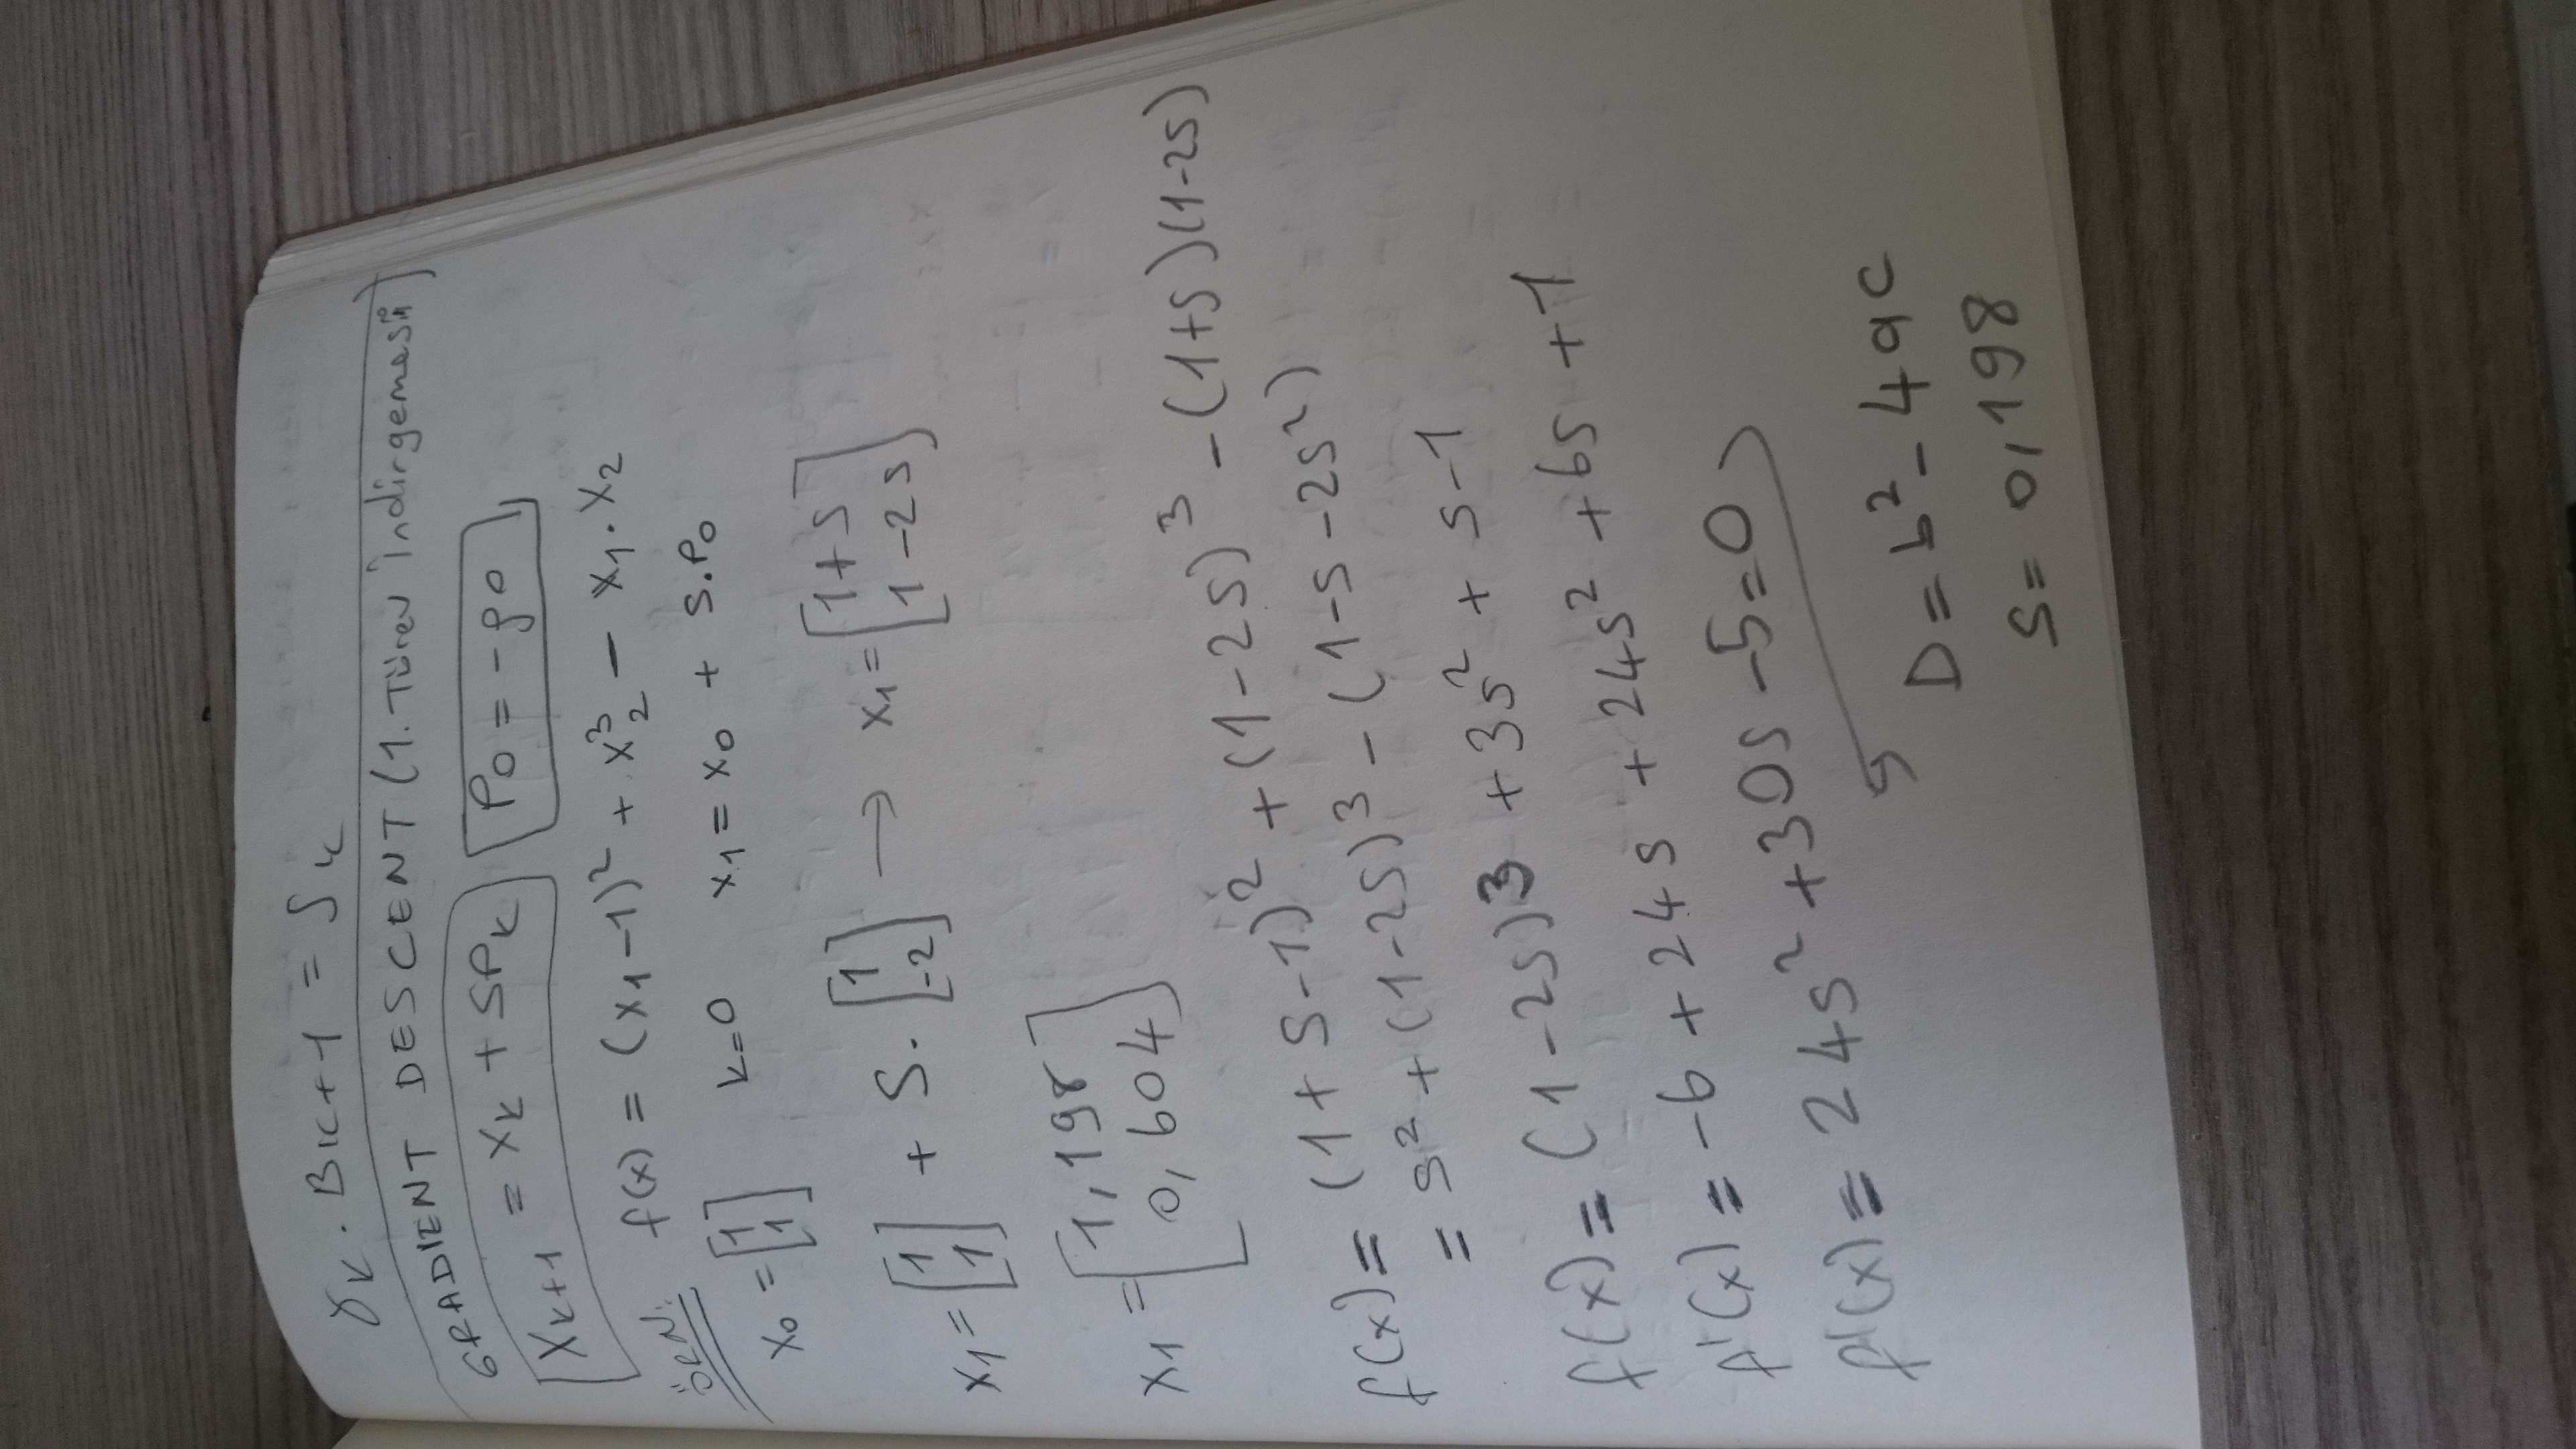 γk . Bk+1 = Sk
GRADIENT DESCENT (1. Türev İndirgemesi)
Xk+1 = Xk + SPk P0 = -g0
ÖRN: f(x) = (x1-1)² + x2³ - x1.x2
x0 = [1 1] k=0 x1 = x0 + S.P0
x1 = [1 1] + S. [1 -2] → x1 = [1+S 1-2S]
x1 = [1,198 0,604]
f(x) = (1+S-1)² + (1-2S)³ - (1+S)(1-2S)
= S² + (1-2S)³ - (1-S-2S²)
f(x) = (1-2S)³ + 3S² + S-1
f'(x) = -6 + 24S + 24S² + 6S + 1
f'(x) = 24S² + 30S - 5 = 0
D = b² - 4ac
S = 0,198